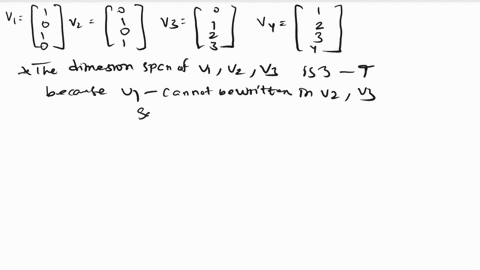 V1 = [1 0 1 0] V2 = [0 1 0 1] V3 = [0 1 2 3] V4 = [1 2 3 4]
* The dimesion span of V1, V2, V3 is 3 - T
because V1 - cannot bewritten in V2, V3
&